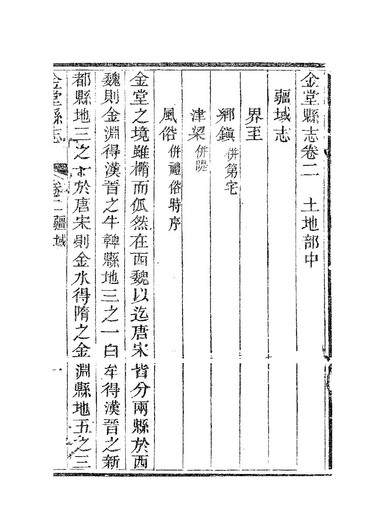 金堂縣志卷二　土地部中
疆域志
界至
鄉鎮 併第宅
津梁 併隄
風俗 併禮俗時序
金堂之境雖橢而傾然在西魏以迄唐宋皆分兩縣於西
魏則金淵得漢晉之牛鞞縣地三之一白牟得漢晉之新
都縣地三之 於唐宋則金水得隋之金淵縣地五之三
金堂縣志　卷二疆域　一